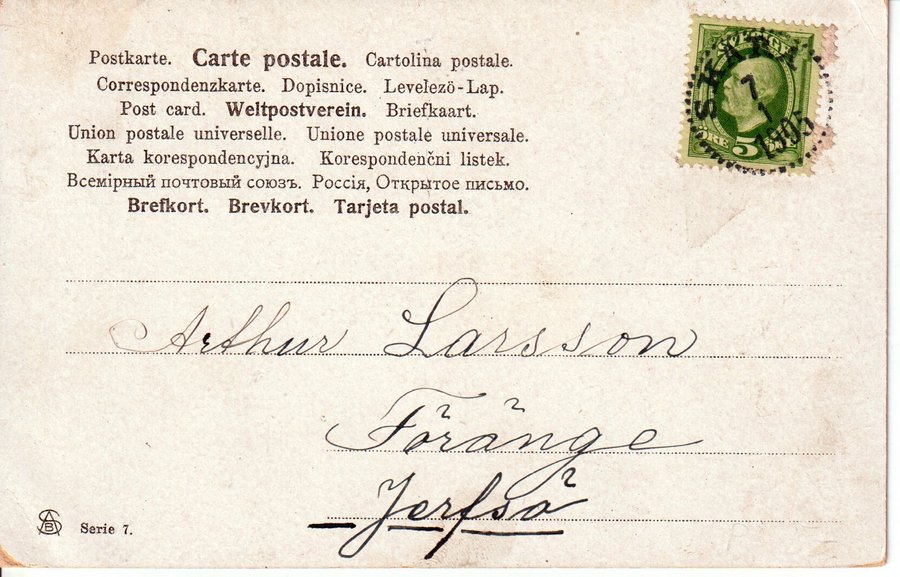 Postkarte. Carte postale. Cartolina postale.
Correspondenzkarte. Dopisnice. Levelező-Lap.
Post card. Weltpostverein. Briefkaart.
Union postale universelle. Unione postale universale.
Karta korespondencyjna. Korespondenčni listek.
Всемірный почтовый союзъ. Россія, Открытое письмо.
Brefkort. Brevkort. Tarjeta postal.
SKARA
7
1
5
Arthur Larsson
Föränge
Jerfsö
Serie 7.